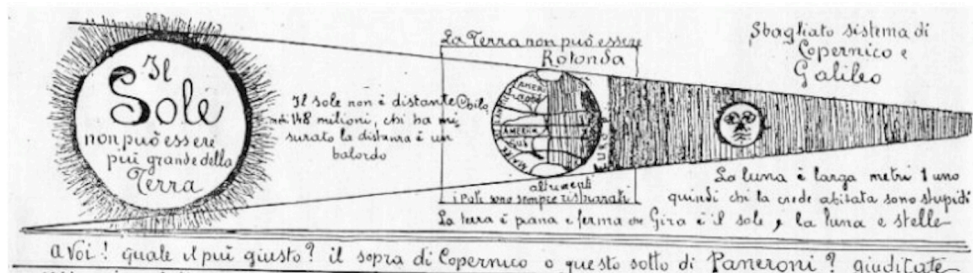 Il
Sole
non può esseri
più grande della
Terra
Il sole non è distante
148 milioni, chi ha mi
surato la distanza è un
balordo
La Terra non può essere
Rotonda
AMERICA
EUROPA
altrimenti
i Poli sono sempre rischiarati
Sbagliato sistema di
Copernico e
Galileo
La luna è larga metri 1 uno
quindi chi la crede abitata sono stupidi
La terra è piana e ferma che Gira è il sole, la luna e stelle
a Voi! quale il più giusto? il sopra di Copernico o questo sotto di Paneroni? giudicate